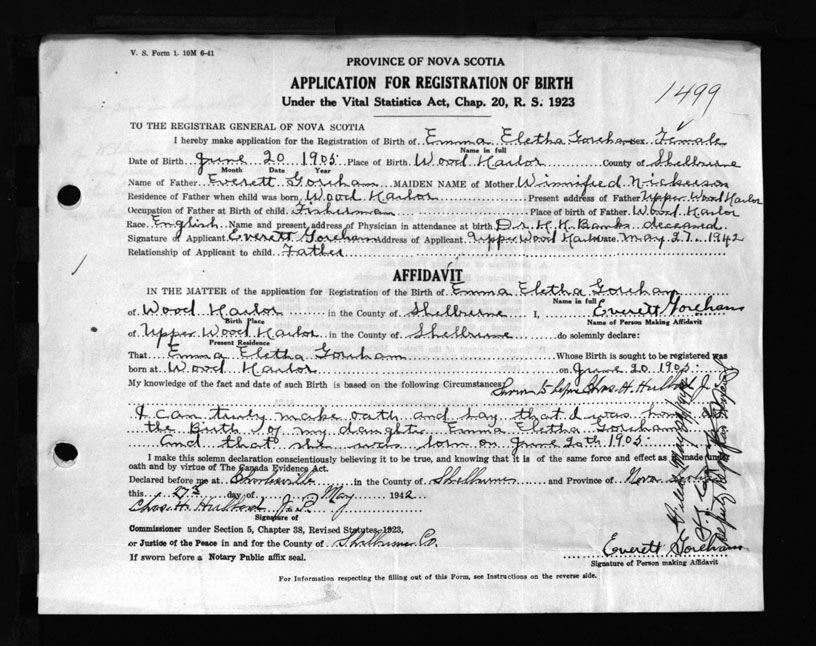 V. S. Form 1. 10M 6-41
PROVINCE OF NOVA SCOTIA
APPLICATION FOR REGISTRATION OF BIRTH
Under the Vital Statistics Act, Chap. 20, R. S. 1923
1499
TO THE REGISTRAR GENERAL OF NOVA SCOTIA
I hereby make application for the Registration of Birth of Emma Eletha Goreham sex Female
Name in full
Date of Birth June 20 1905 Place of Birth Wood Harbor County of Shelburne
Month Date Year
Name of Father Everett Goreham MAIDEN NAME of Mother Winnifred Nickerson
Residence of Father when child was born, Wood Harbor Present address of Father Upper Wood Harbor
Occupation of Father at Birth of child. Fisherman Place of birth of Father Wood Harbor
Race. English Name and present address of Physician in attendance at birth Dr. H. K. Banks deceased
Signature of Applicant Everett Goreham Address of Applicant Upper Wood Harbor Date May 27. 1942
Relationship of Applicant to child. Father
AFFIDAVIT
IN THE MATTER of the application for Registration of the Birth of Emma Eletha Goreham
Name in full
of Wood Harbor in the County of Shelburne I, Everett Goreham
Birth Place Name of Person Making Affidavit
of Upper Wood Harbor in the County of Shelburne do solemnly declare:
Present Residence
That Emma Eletha Goreham Whose Birth is sought to be registered was
born at Wood Harbor on June 20 1905
My knowledge of the fact and date of such Birth is based on the following Circumstances Sworn to before Chas. H. Hubbard J. P.
I can truly make oath and say that I was home at
the Birth of my daughter Emma Eletha Goreham
and that she was born on June 20th 1905
I make this solemn declaration conscientiously believing it to be true, and knowing that it is of the same force and effect as if made under
oath and by virtue of The Canada Evidence Act.
Declared before me at in the County of Shelburne and Province of Nova Scotia
this 27 day of May 1942
Chas. H. Hubbard J. P.
Signature of
Commissioner under Section 5, Chapter 38, Revised Statutes, 1923,
or Justice of the Peace in and for the County of Shelburne Co.
If sworn before a Notary Public affix seal.
Everett Goreham
Signature of Person making Affidavit
For Information respecting the filling out of this Form, see Instructions on the reverse side.